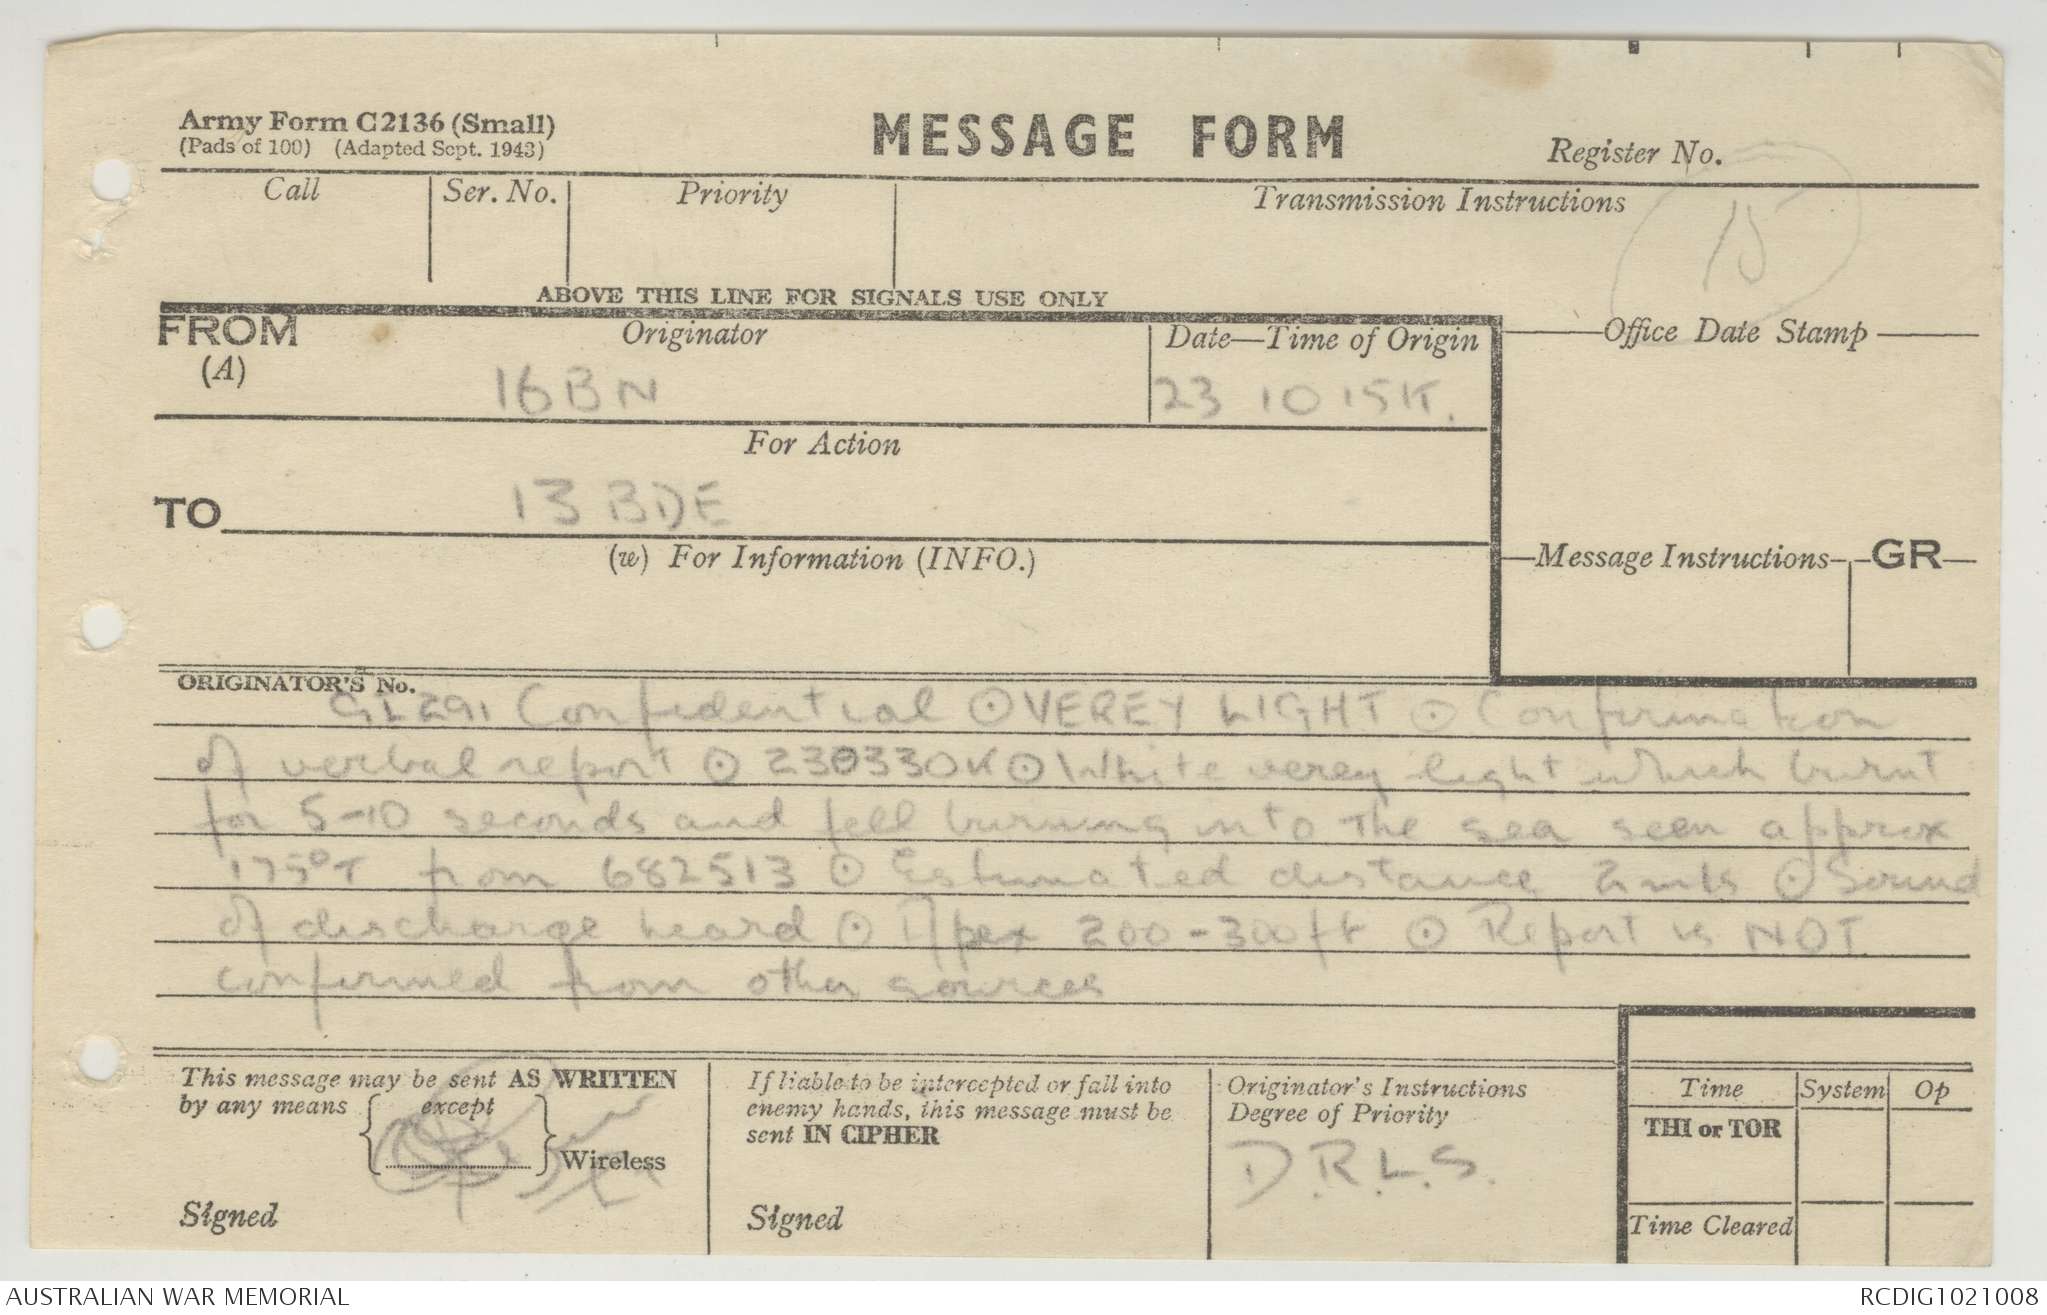 Army Form C2136 (Small)
(Pads of 100) (Adapted Sept. 1943)
MESSAGE FORM
Register No.
15
Call
Ser. No.
Priority
Transmission Instructions
ABOVE THIS LINE FOR SIGNALS USE ONLY
FROM
(A)
Originator
16 BN
Date—Time of Origin
23 1015K.
Office Date Stamp
For Action
TO
13 BDE
(w) For Information (INFO.)
Message Instructions
GR
ORIGINATOR'S No.
GL291 Confidential ⊙ VEREY LIGHT ⊙ Confirmation
of verbal report ⊙ 230330K ⊙ White verey light which burnt
for 5-10 seconds and fell burning into the sea seen approx
175°T from 682513 ⊙ Estimated distance 2 mls ⊙ Sound
of discharge heard ⊙ Apex 200-300ft ⊙ Report is NOT
confirmed from other sources
This message may be sent AS WRITTEN
by any means
except
Wireless
Signed
If liable to be intercepted or fall into
enemy hands, this message must be
sent IN CIPHER
Signed
Originator's Instructions
Degree of Priority
D.R.L.S.
Time
System
Op
THI or TOR
Time Cleared
AUSTRALIAN WAR MEMORIAL
RCDIG1021008